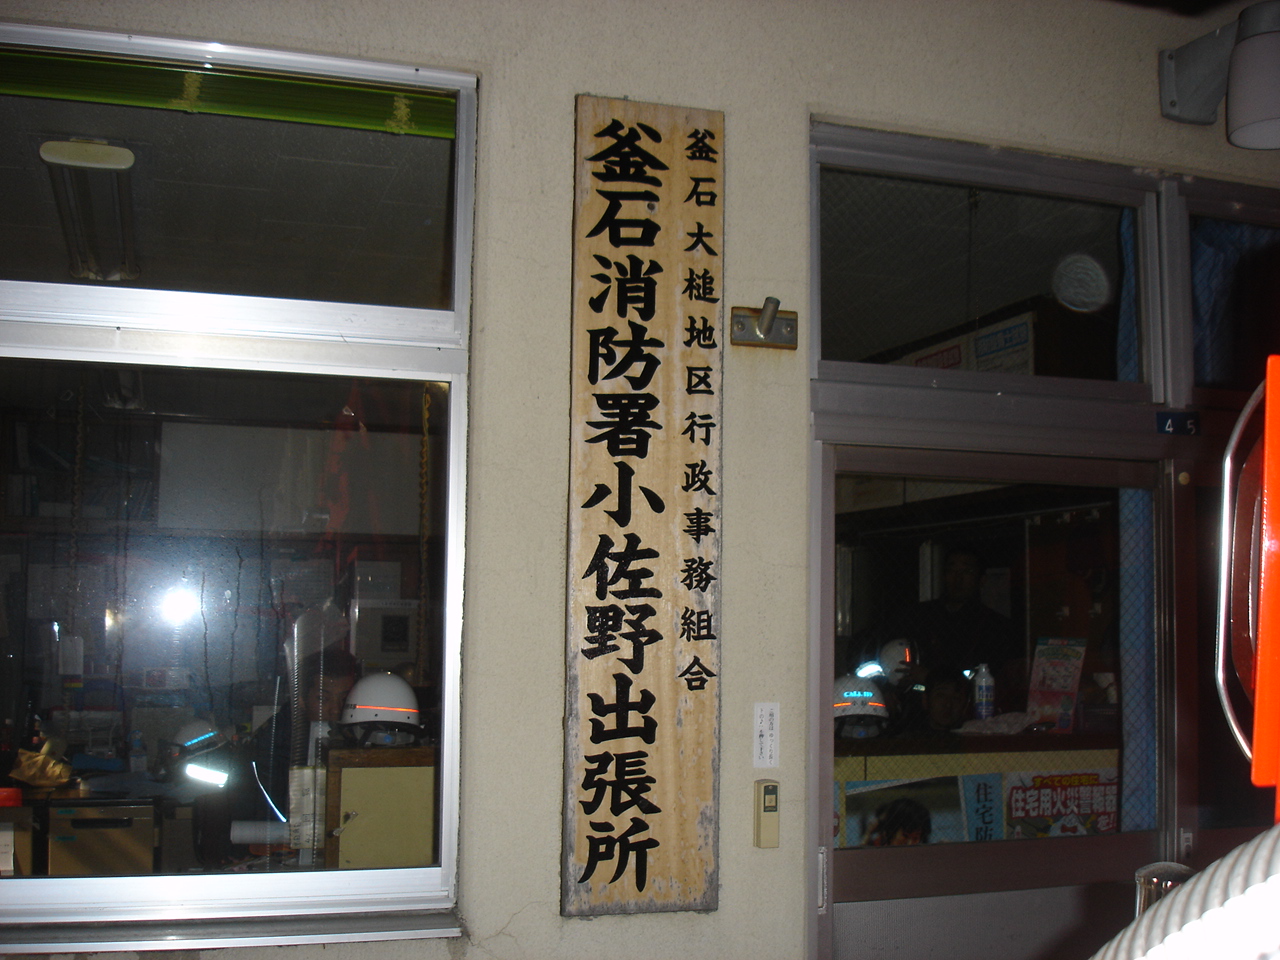 釜石大槌地区行政事務組合
釜石消防署小佐野出張所
45
すべての住宅に
住宅用火災警報器
だ!
住宅防